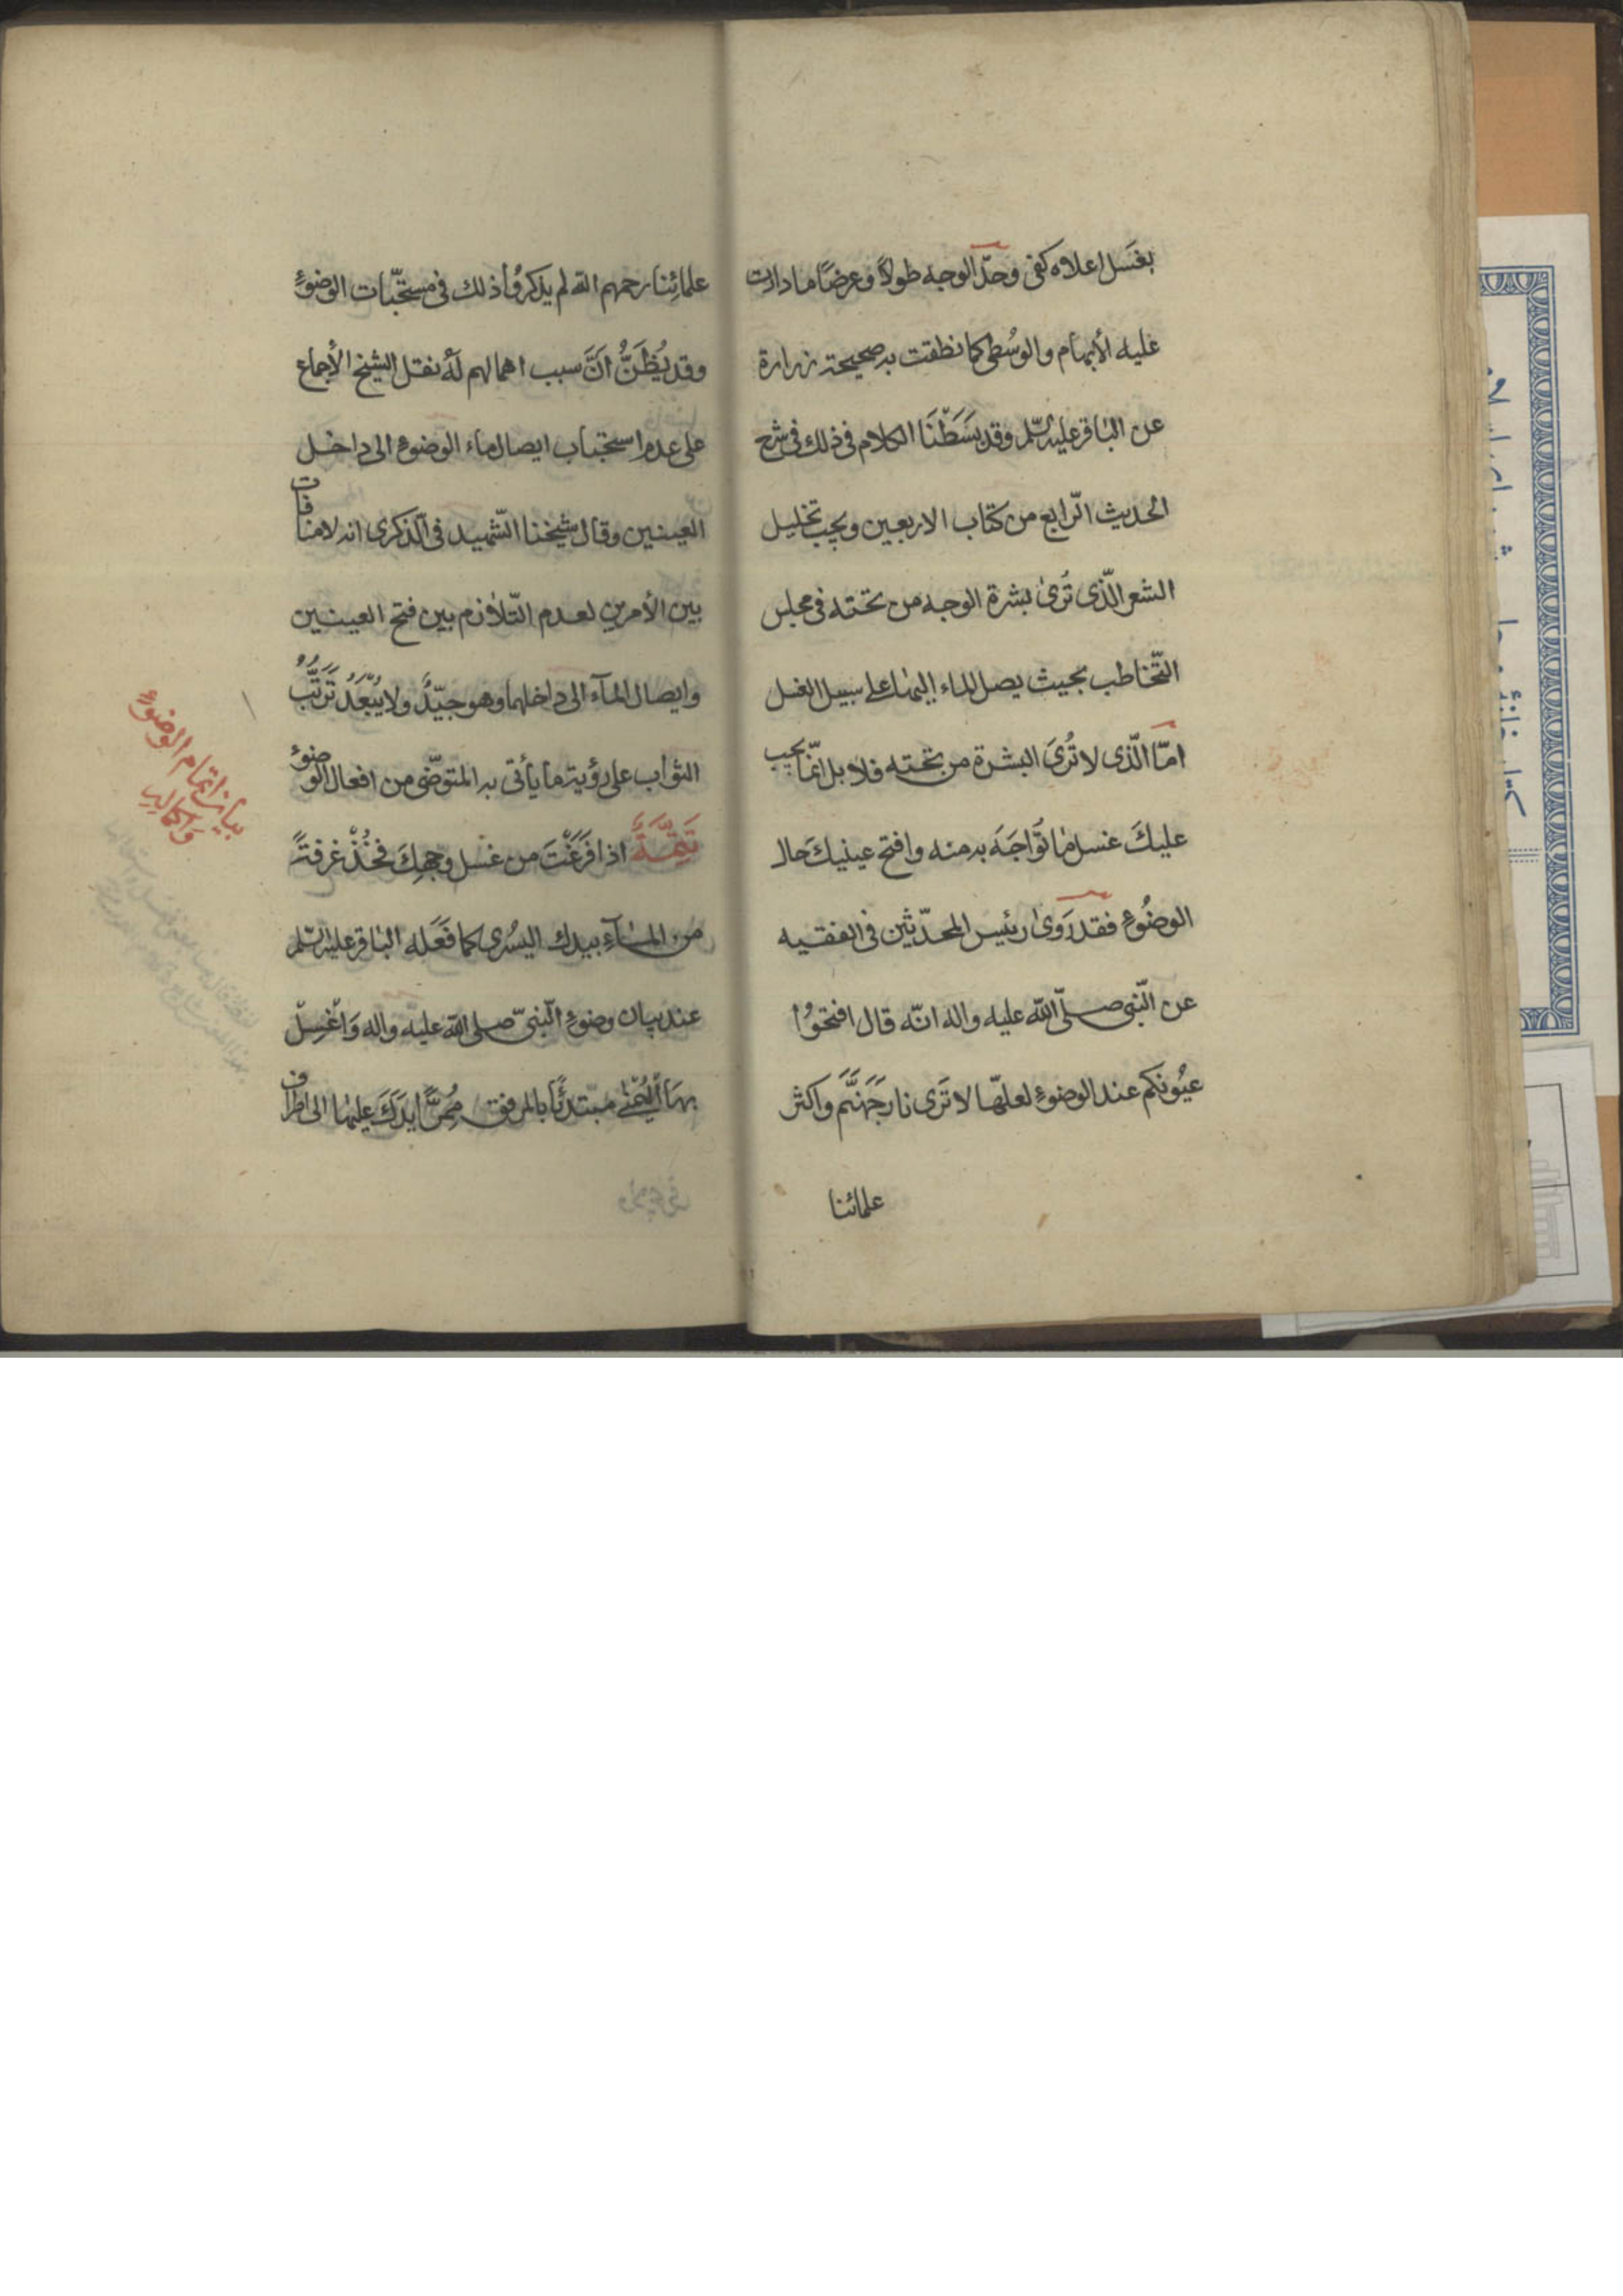 بغَسل اعلاه كفى وحدّ الوجه طولاً وعرضًا ما دارت
عليه الأبهام والوُسْطى كما نطقت به صحيحة زرارة
عن الباقر عليه السّلم وقد بَسَطْنَا الكلام فى ذلك فى شرح
الحديث الرّابع من كتاب الاربعين ويجب تخليل
الشعر الّذى تُرىٰ بشرة الوجه من تحته فى مجلس
التّخاطب بحيث يصل الماء اليها على سبيل الغسل
امّا الّذى لا تُرىَ البشرة من تحته فلا بل انّما يجب
عليكَ غسل ما تُوَاجَهَ به منه وافتح عينيكَ حال
الوضُوء فقد رَوىٰ رئيس المحدّثين فى الفقيه
عن النّبى صلّى اللّه عليه واله انّه قال افتحُوا
عيُونكم عند الوضوءِ لعلّها لا تَرى نار جَهَنَّمَ واكثر
علمائنا
علمائِنا رحمهم اللّه لم يذكرُوا ذلك فى مستحّبات الوضوءِ
وقد يُظَنُّ اَنَّ سبب اهمالهم لَهُ نقل الشيخ الأجماع
على عدم استحباب ايصال ماء الوضوء الى داخل
العينين وقال شيخنا الشّهيد فى الذّكرى انه لا منافات
بين الأمرين لعدم التّلازم بين فتح العينين
وايصال المآء الى داخلهما وهو جيّدٌ ولا يُبّعَدُ تَرَتّبُ
الثواب على رؤية ما يأتى به المتوضّى من افعال الوضوءِ
تَتِمَّةٌ اذا فَرَغْتَ من غسل وجهِكَ فخُذْ غرفةً
من المآءِ بيدك اليسُرى كما فَعَله الباقر عليه السّلم
عند بيان وضوءِ النّبىّ صلى اللّه عليه واله وَاغْسِلْ
بهَا اليُمْنٰى مبتدئًا بالمرفق مُمِرًّا يدَكَ عليها الى اطراف
بيان اتمام الوضوءِ
واكماله